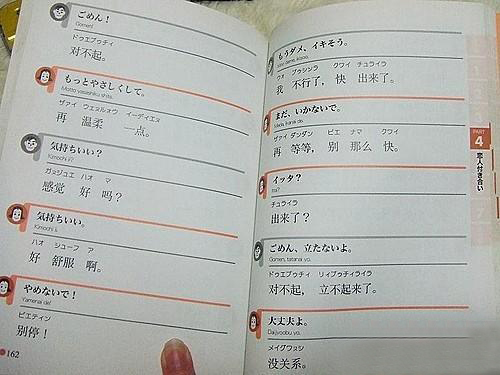 ごめん！
Gomen!
ドゥエブゥチィ
对不起。
もっとやさしくして。
Motto yasashiku shite.
ザァイ ウェンルォウ イーディエヌ
再 温柔 一点。
気持ちいい？
Kimochi ii?
ガァジュエ ハオ マ
感觉 好 吗？
気持ちいい。
Kimochi ii.
ハオ シューフ ア
好 舒服 啊。
やめないで！
Yamenai de!
ビエティン
别停！
162
もうダメ、イキそう。
ウオ ブゥシンラ クワイ チュライラ
我 不行了，快 出来了。
まだ、いかないで。
Mada, ikanai de.
ザァイ ダンダン ビエ ナマ クワイ
再 等等，别 那么 快。
イッタ？
Itta?
チュライラ
出来了？
ごめん、立たないよ。
Gomen, tatanai yo.
ドゥエブゥチィ リィブゥチィライラ
对不起， 立不起来了。
大丈夫よ。
Daijyoubu yo.
メイグワンシ
没关系。
PART
4
恋人付き合い